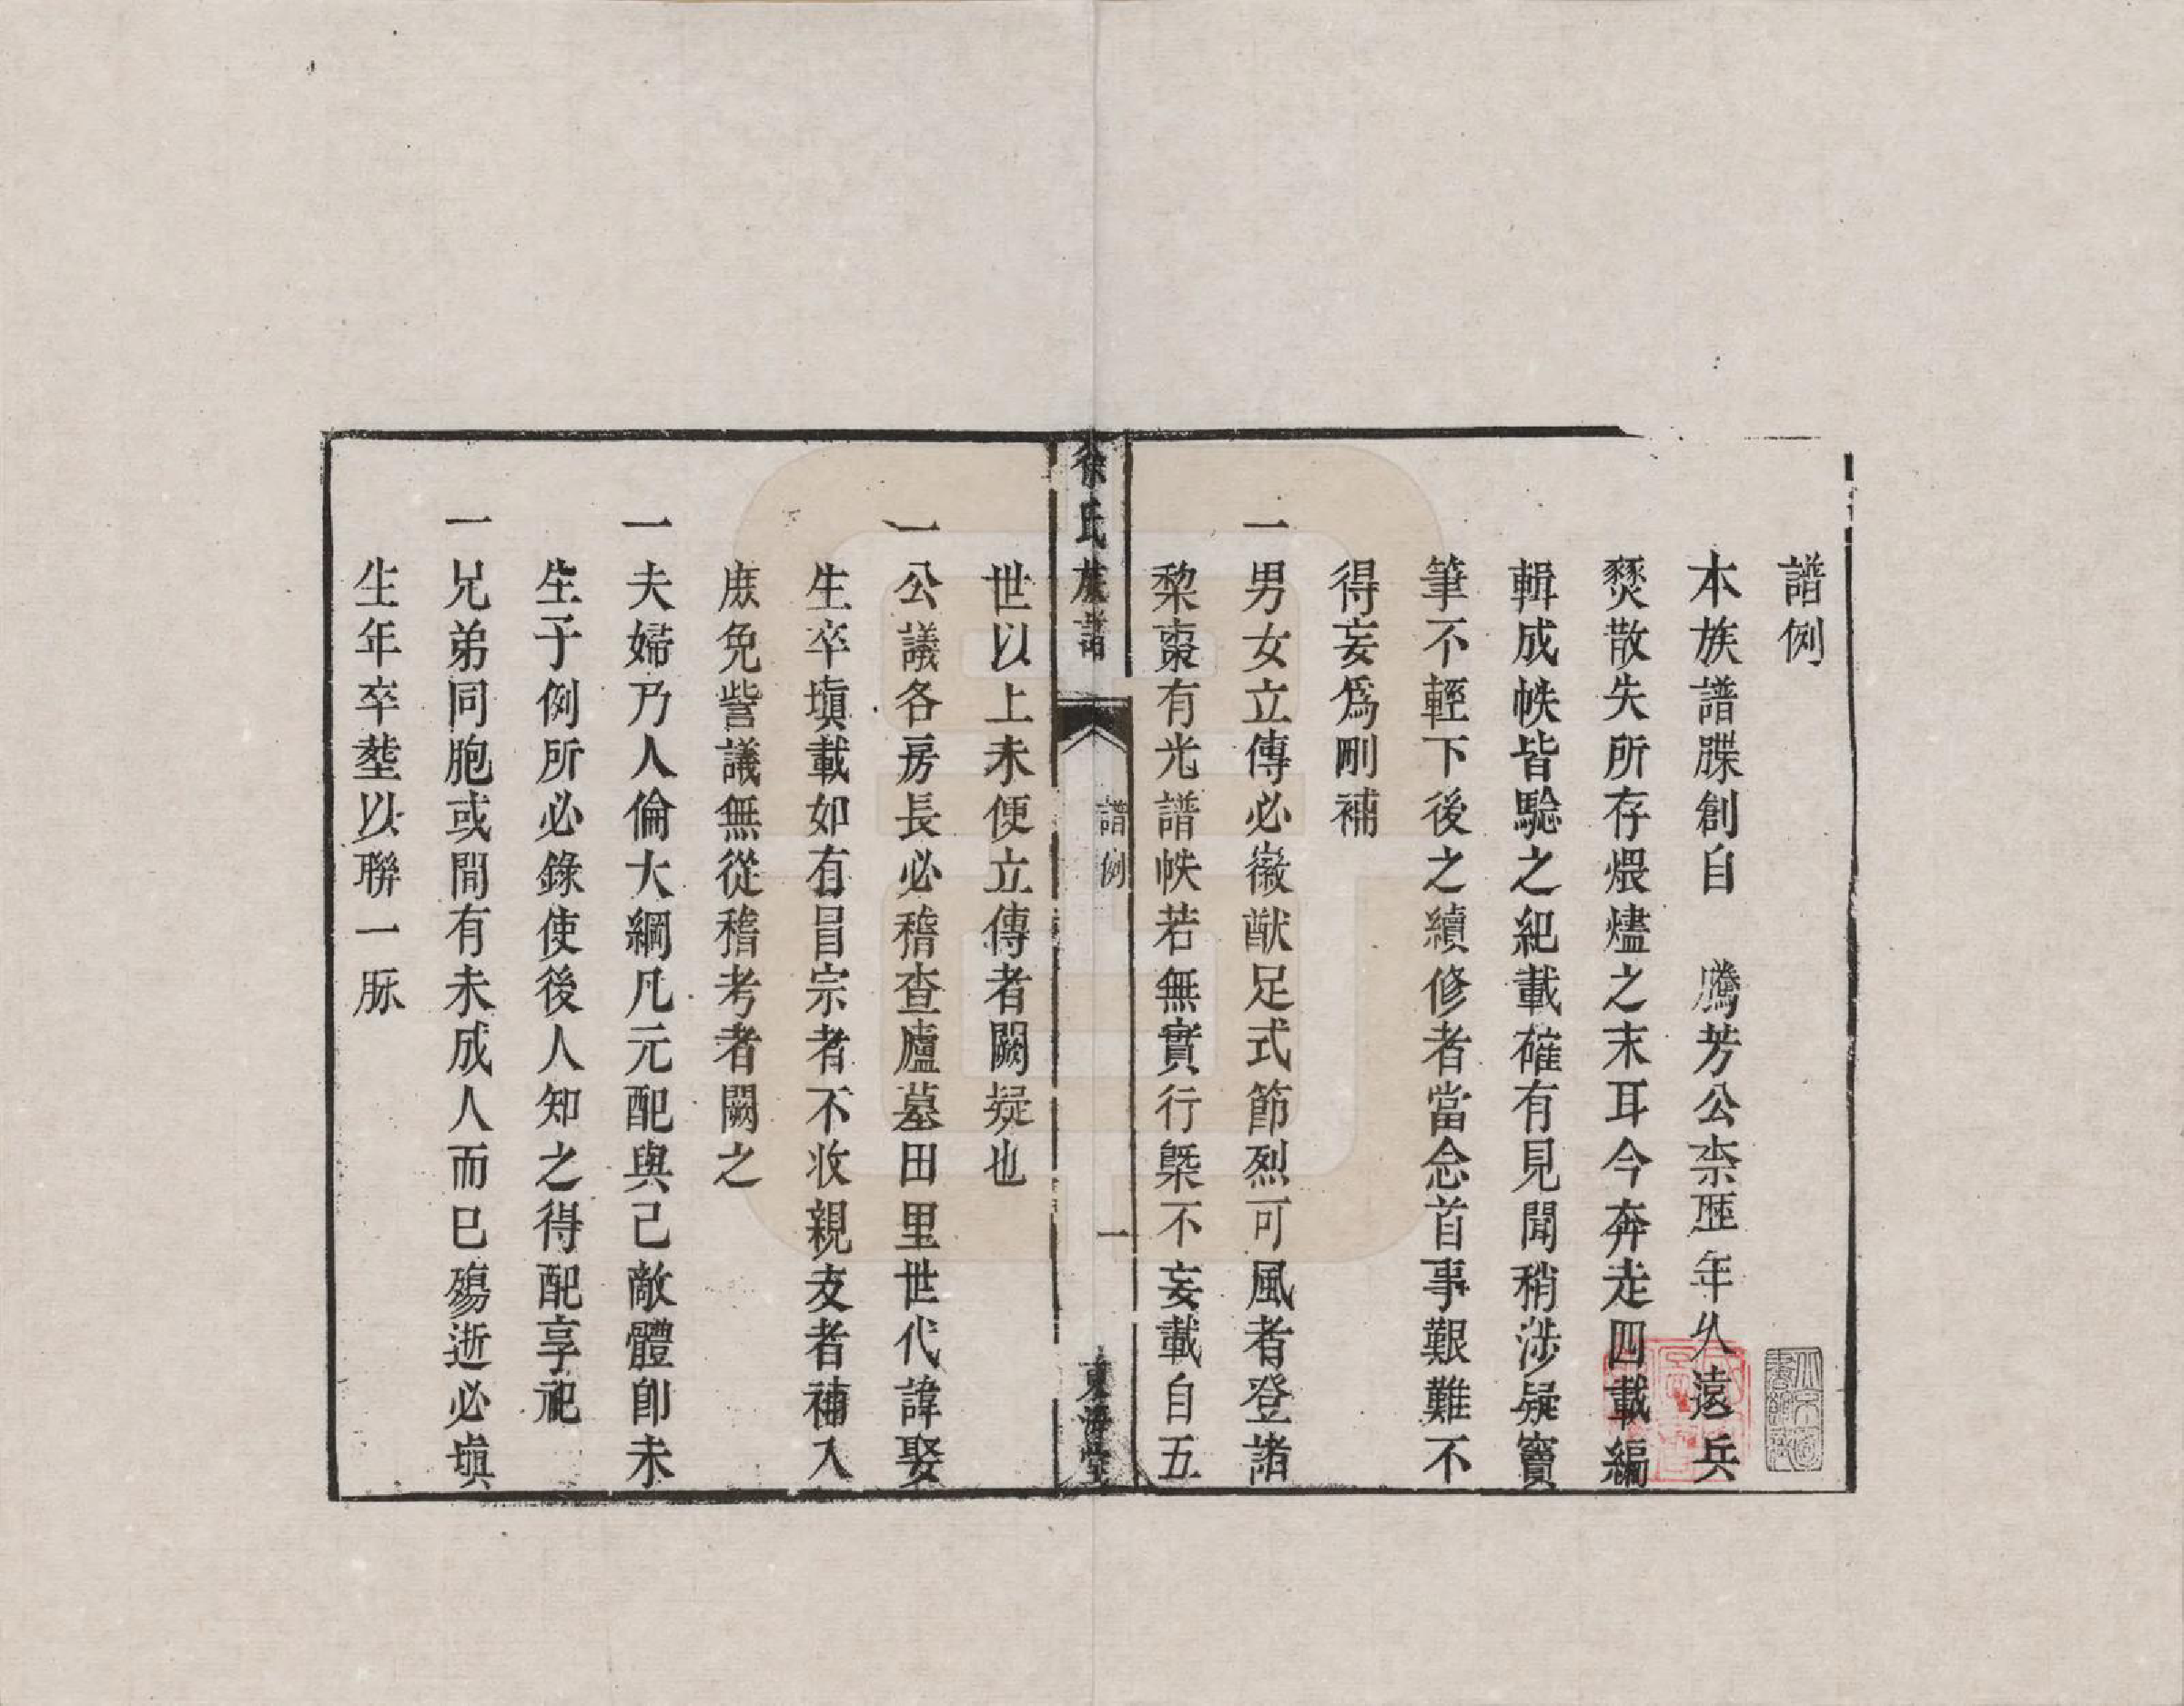 譜例
本族譜牒創自　騰芳公柰歷年久遠兵
燹散失所存煨燼之末耳今奔走四載編
輯成帙皆騐之紀載確有見聞稍涉疑竇
筆不輕下後之續修者當念首事艱難不
得妄爲刪補
一男女立傳必徽猷足式節烈可風者登諸
棃棗有光譜帙若無實行槩不妄載自五
徐氏族譜　譜例　一　東海堂
世以上未便立傳者闕疑也
一公議各房長必稽查廬墓田里世代諱娶
生卒塡載如有冒宗者不收親支者補入
庶免訾議無從稽考者闕之
一夫婦乃人倫大綱凡元配與己敵體卽未
生子例所必錄使後人知之得配享祀
一兄弟同胞或間有未成人而已殤逝必塡
生年卒塟以聯一脈